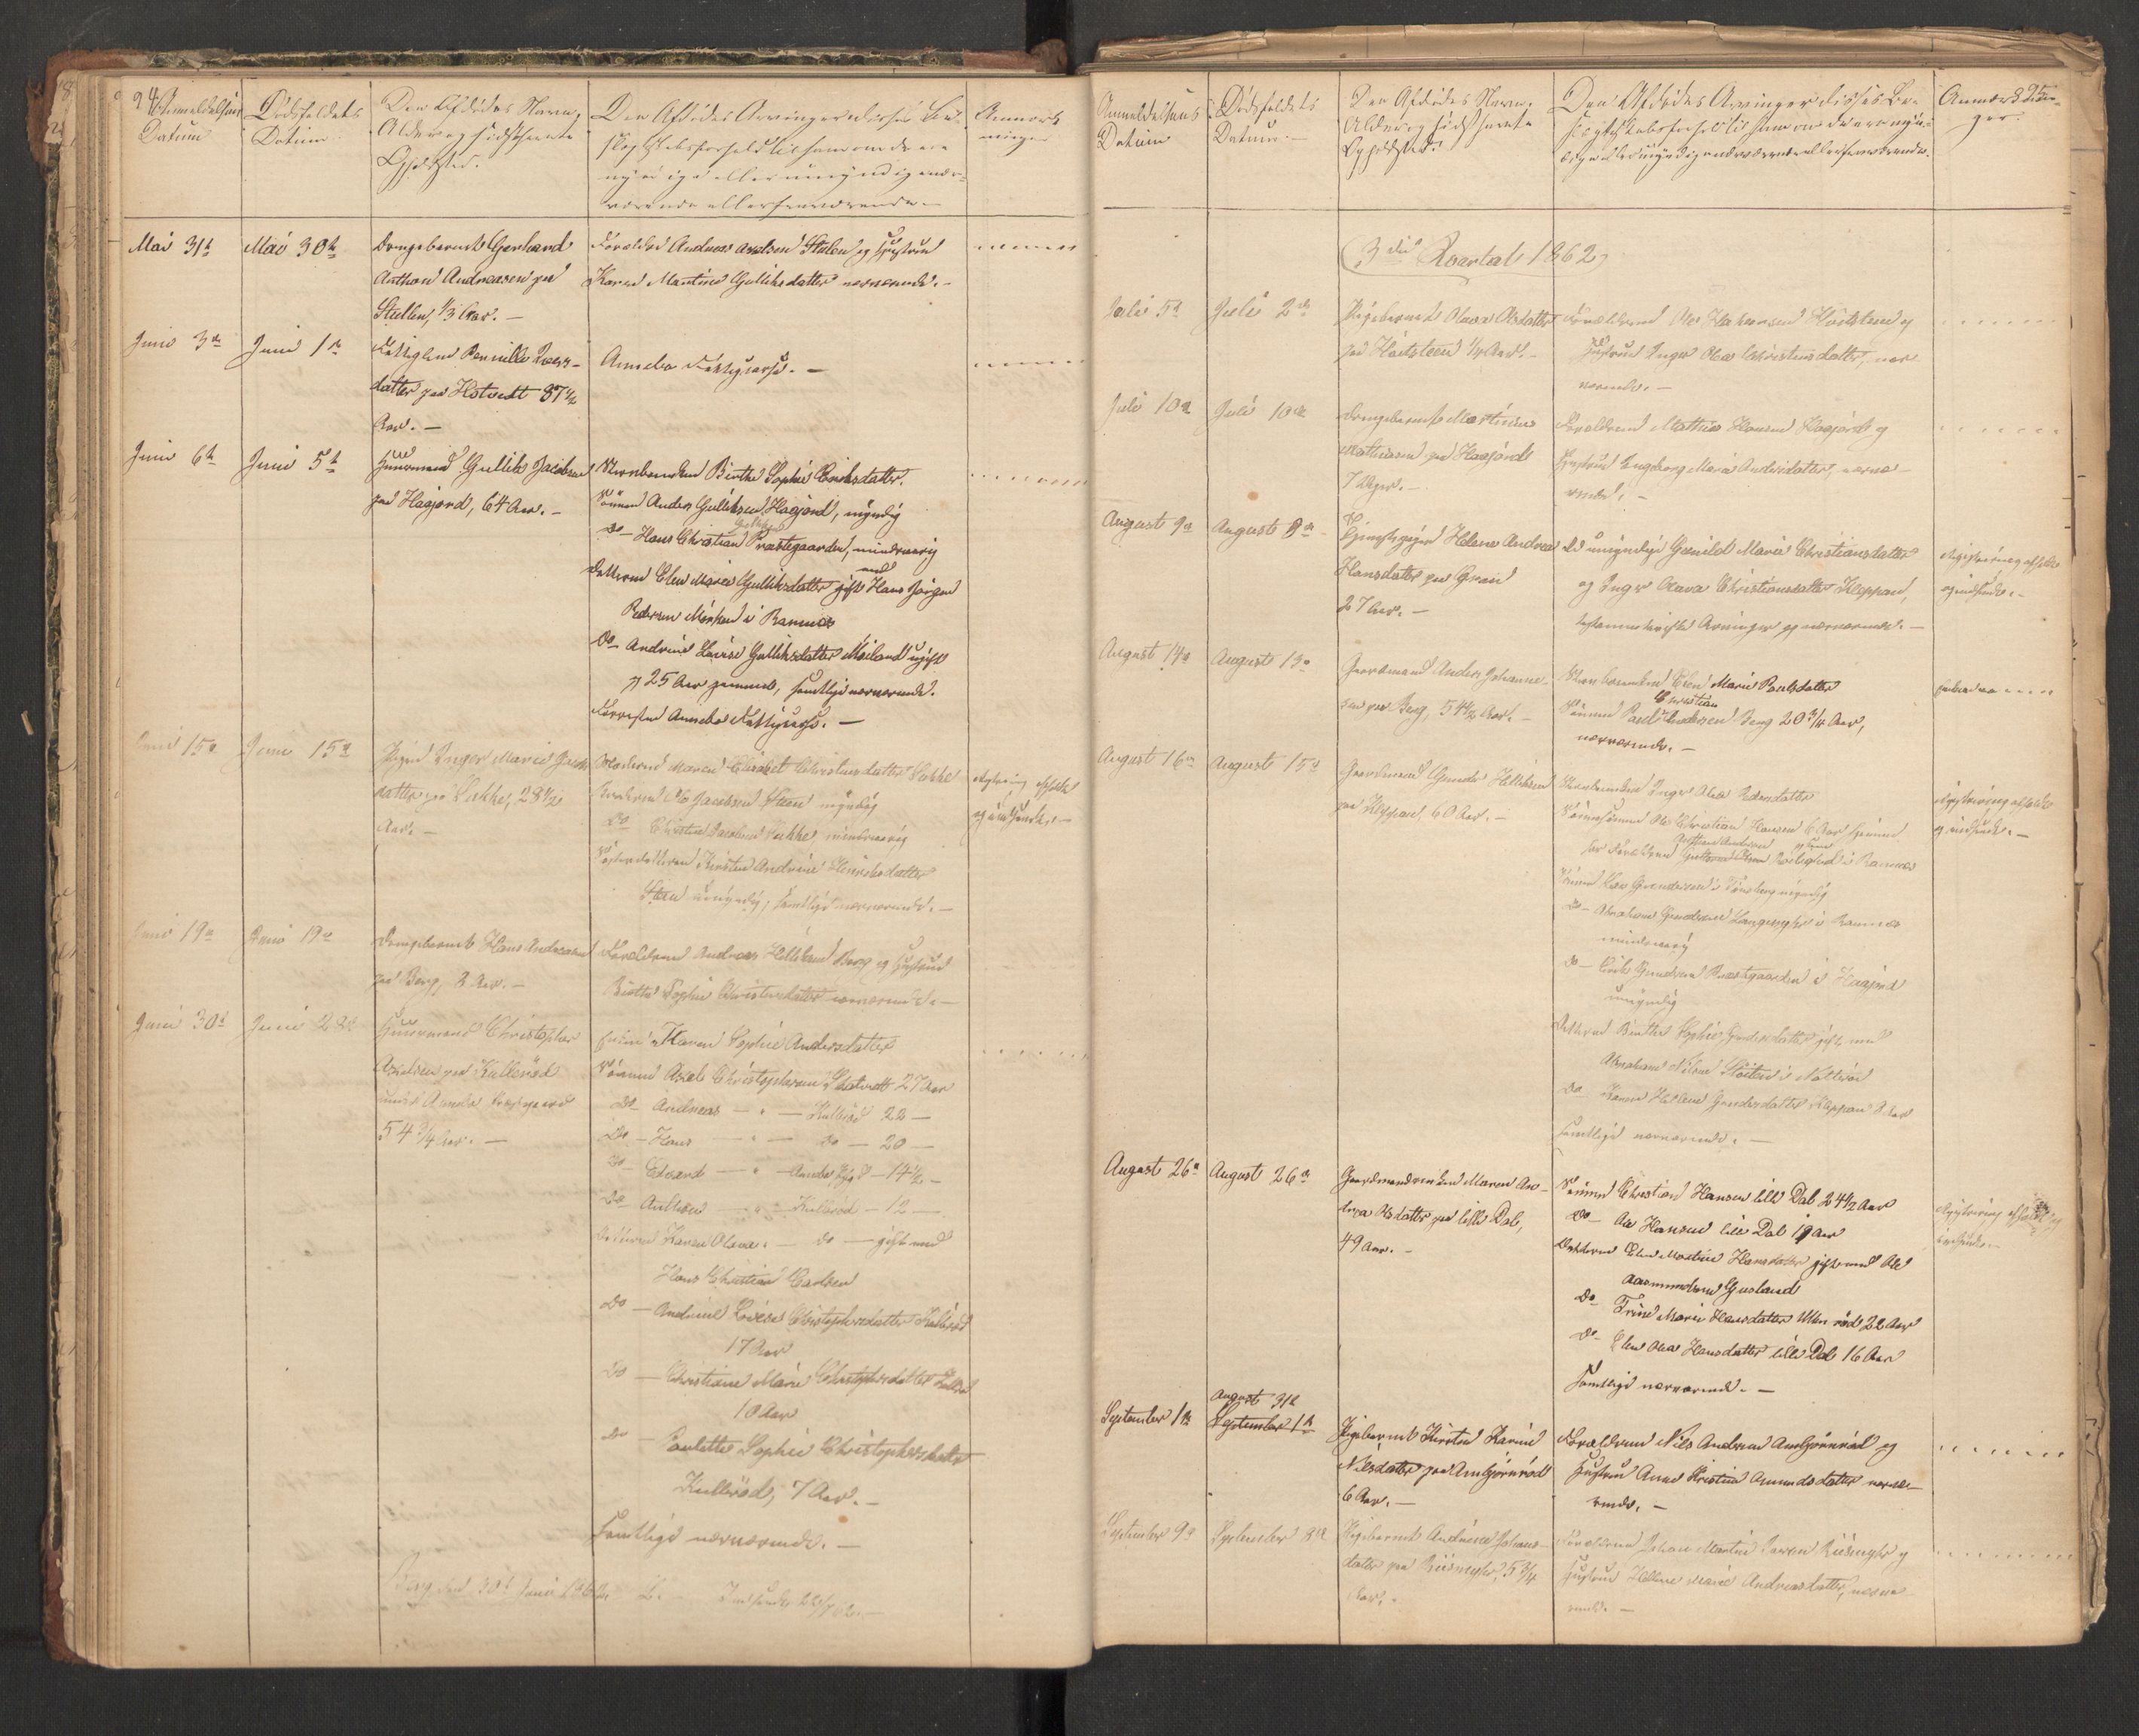 24
Anmeldelsens
Datum
Dødsfaldets
Datum
Den Afdødes Navn,
Alder og sidst havte
Opholdssted.
Den Afdødes Arvinger disses Be-
slægtskabsforhold til ham om de ere
myndige eller umyndig nær-
værende eller fraværende
Anmærk
ninger
Mai 31te
Mai 30te
Drengebarnet Gerhard
Anthon Andreasen paa
Stullen, 1/3 Aar. —
Forældre Andreas Axelsen Stulen og Hustru
Karen Martine Gulliksdatter nærværende. —
Juni 3die
Juni 1ste
Fattiglem Pernille Lars-
datter paa Hotvedt 87 1/2
Aar. —
Anmeldes Fattigkasse. —
Juni 6te
Juni 5te
Huusmand Gullik Jacobsen
paa Haajord, 64 Aar. —
Enken Birthe Sophie Eriksdatter.
Sönnen Anders Gulliksen Haajord, myndig
Do — Hans Christian Gulliksen Præstegaarden, mindreaarig
Datteren Elen Maria Gulliksdatter gift med Hans Jörgen
Pedersen Mörken i Ramnæs
Do — Andrine Lovise Gulliksdatter Meiland ugift
og 25 Aar gammel, samtlige nærværende.
Forresten Anmeldes Fattigkasse. —
Juni 15de
Juni 15de
Pigen Inger Marie Jacobs
datter paa Sukke, 28 1/2
Aar. —
Moderen Maren Elisabet Christensdatter Sukke
Broderen Ole Jacobsen Steen myndig
Do Christen Jacobsen Sukke mindreaarig
Söster datteren Kirsten Andrine Henriksdatter
Steen umyndig, samtlige nærværende. —
Registrering afholdt
og indsendt. —
Juni 19de
Juni 19de
Drengebarnet Hans Andreasen
paa Berg, 3 Aar. —
Forældrene Andreas Hellesen Berg og Hustru
Birthe Sophie Christensdatter nærværende. —
Juni 30te
Juni 28de
Huusmand Christopher
Axelsen paa Kullerød
under Aands Præstegaard
54 3/4 Aar. —
Enken Karen Sophie Andersdatter
Sönnen Axel Christophersen Hotvedt 27 Aar
Do — Andreas — " — Kullerød 22 —
Do — Hans — " — Do — 20 —
Do — Edvard — " — 14 1/2 —
Do — Anthon — " — Kullerød — 12 —
Datteren Karen Olava — Do — gift med
Hans Christian Carlsen
Do — Andrine Lovise Christophersdatter Kullerød
17 Aar
Do — Christiane Marie Christophersdatter Kullerød
10 Aar
Do — Paulette Sophie Christophersdatter
Kullerød, 7 Aar. —
Samtlige nærværende. —
Berg den 30te Juni 1862. Indsendt 22/7 62. —
25
Anmeldelsens
Datum
Dødsfaldets
Datum. —
Den Afdødes Navn,
Alder og sidst havte
Opholdssted.
Den Afdødes Arvinger disses Be-
slægtskabsforhold til ham om de ere myn-
dige eller umyndig nærværende eller fraværende.
Anmærknin-
ger.
3die Kvartal 1862
Juli 5te
Juli 2den
Pigebarnet Olava Olsdatter
paa Höitsteen 1/4 Aar. —
Forældrene Ole Hansen Höitsteen og
Hustru Inger Olea Christensdatter, nær-
værende. —
Juli 10de
Juli 10de
Drengebarnet Martinius
Mathiasen paa Haajord
7 Uger. —
Forældrene Mathias Hansen Haajord og
Hustru Ingeborg Maria Andersdatter, nærvæ-
rende. —
August 9de
August 8de
Tjenestepigen Helene Andrea
Hansdatter paa Gran
27 Aar. —
De umyndige Gunild Marie Christiansdatter
og Inger Olava Christiansdatter Kleppan,
testamentariske Arvinger og nærværende. —
Registrering afholdt
og indsendt. —
August 14de
August 13de
Gaardmand Anders Johanne-
sen paa Berg, 54 1/2 Aar. —
Enken Elen Marie Poulsdatter
Sönnen Paul Christian Andersen Berg 20 3/4 Aar,
nærværende. —
August 16de
August 15de
Gaardmand Gunder Hellesen
paa Kleppan, 60 Aar. —
Enken Inger Olea Pedersdatter
Sönnesönnen Ole Christian Hansen 6 Aar
i Ramnæs
Sönnen Lars Gundersen i Tönsberg myndig
Do — Abraham Gundersen i Ramnæs
mindreaarig
Do — Erik Gundersen Præstegaarden i Haajord
umyndig
Datteren Birthe Sophie Gundersdatter gift med
Abraham Nilsen i Nötteröe
Do — Karen Helene Gundersdatter Kleppan 8 Aar
samtlige nærværende. —
Registrering afholdt
og indsendt. —
August 26de
August 26de
Gaardmandsenken Maren An-
drea Olsdatter paa lille Dal,
49 Aar. —
Sönnen Christian Hansen lille Dal 24 1/2 Aar
Do — Ole Hansen lille Dal 19 Aar
Datteren Elen Martine Hansdatter gift med Ole
Aasmundsen Gusland
Do — Trine Marie Hansdatter Ulleröd 22 Aar
Do — Elen Olea Hansdatter lille Dal 16 Aar
Samtlige nærværende. —
Registrering afholdt og
indsendt. —
September 1ste
August 31te
September 1ste
Pigebarnet Kirstine Karine
Nilsdatter paa Arnbjörnröd
6 Aar. —
Forældrene Nils Andersen Arnbjörnröd og
Hustru Anne Kristine Amundsdatter nærvæ-
rende. —
September 9de
September 8de
Pigebarnet Andrine Johans-
datter paa Riismyhr, 5 3/4
Aar. —
Forældrene Johan Martin Larsen Riismyhr og
Hustru Helene Marie Andreasdatter, nærvæ-
rende. —